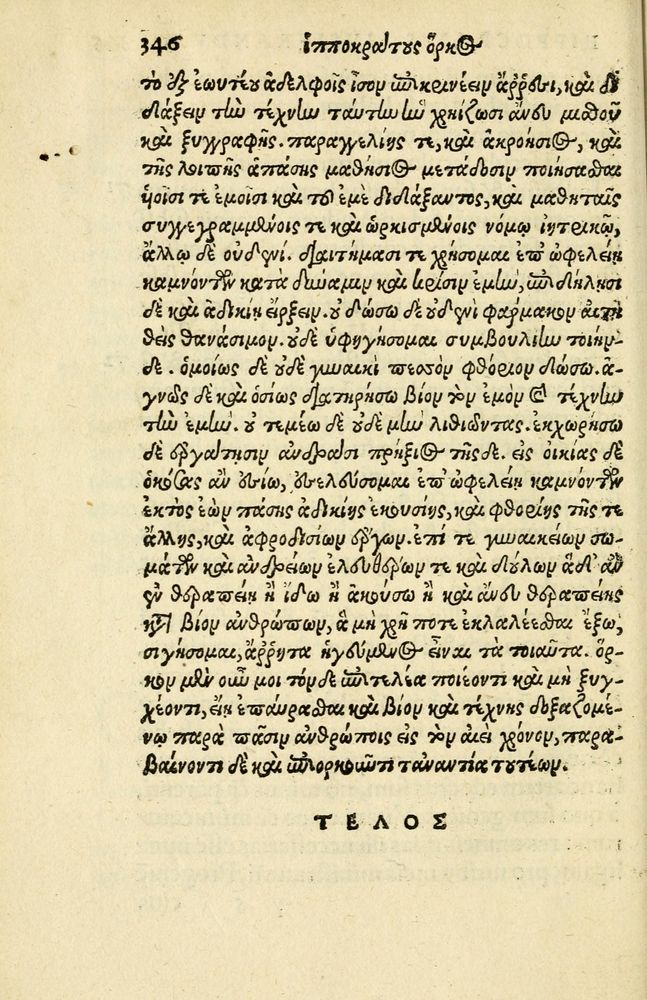 346 ἱπποκράτους ὅρκος
το ἐξ ἑωυτέου ἀδελφοῖς ἶσον ἐπικρινέειν ἄῤῥεσι, καὶ δι
δάξειν τὴν τέχνην ταύτην ἢν χρηίζωσι ἄνευ μισθοῦ
καὶ ξυγγραφῆς. παραγγελίης τε, καὶ ἀκροήσιος, καὶ
τῆς λοιπῆς ἁπάσης μαθήσιος μετάδοσιν ποιήσασθαι
ὑοῖσι τε ἐμοῖσι καὶ τοῦ ἐμὲ διδάξαντος, καὶ μαθηταῖς
συγγεγραμμένοις τε καὶ ὡρκισμένοις νόμῳ ἰητρικῷ,
ἄλλῳ δὲ οὐδενί. διαιτήμασι τε χρήσομαι ἐπ' ὠφελείῃ
καμνόντων κατὰ δύναμιν καὶ κρίσιν ἐμὴν, ἐπὶ δηλήσι
δὲ καὶ ἀδικίῃ εἴρξειν. οὐ δώσω δὲ οὐδενὶ φάρμακον αἰτη
θεὶς θανάσιμον. οὐδὲ ὑφηγήσομαι συμβουλίην τοιήν-
δε. ὁμοίως δὲ οὐδὲ γυναικὶ πεσσὸν φθόριον δώσω. ἁ-
γνῶς δὲ καὶ ὁσίως διατηρήσω βίον τὸν ἐμὸν καὶ τέχνην
τὴν ἐμήν. οὐ τεμέω δὲ οὐδὲ μὴν λιθιῶντας. ἐκχωρήσω
δὲ ἐργάτῃσιν ἀνδράσι πρήξιος τῆς δε. εἰς οἰκίας δὲ
ὁκόσας ἂν ἐσίω, ἐσελεύσομαι ἐπ' ὠφελείῃ καμνόντων
ἐκτὸς ἐὼν πάσης ἀδικίης ἑκουσίης, καὶ φθορίης τῆς τε
ἄλλης, καὶ ἀφροδισίων ἔργων. ἐπί τε γυναικείων σω-
μάτων καὶ ἀνδρείων ἐλευθέρων τε καὶ δούλων ἃ δ' ἂν
ἐν θεραπείῃ ἢ ἴδω ἢ ἀκούσω ἢ καὶ ἄνευ θεραπείης
κατὰ βίον ἀνθρώπων, ἃ μὴ χρή ποτε ἐκλαλέεσθαι ἔξω,
σιγήσομαι, ἄῤῥητα ἡγεύμενος εἶναι τὰ τοιαῦτα. ὅρ-
κον μὲν οὖν μοι τόνδε ἐπιτελέα ποιέοντι καὶ μὴ ξυγ-
χέοντι, εἴη ἐπαύρασθαι καὶ βίου καὶ τέχνης δοξαζομέ-
νῳ παρὰ πᾶσιν ἀνθρώποις εἰς τὸν ἀεὶ χρόνον, παρα-
βαίνοντι δὲ καὶ ἐπιορκοῦντι τἀναντία τουτέων.
ΤΕΛΟΣ